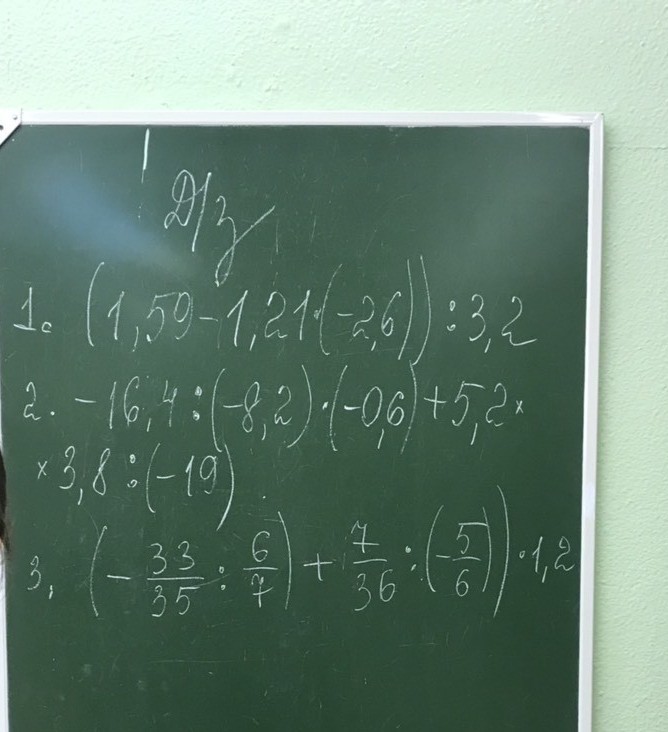 Д/з
1. (1,59-1,21·(-2,6)):3,2
2. -16,4:(-8,2)·(-0,6)+5,2×
×3,8:(-19)
3. (-33/35 : 6/7) + 7/36 : (-5/6))·1,2